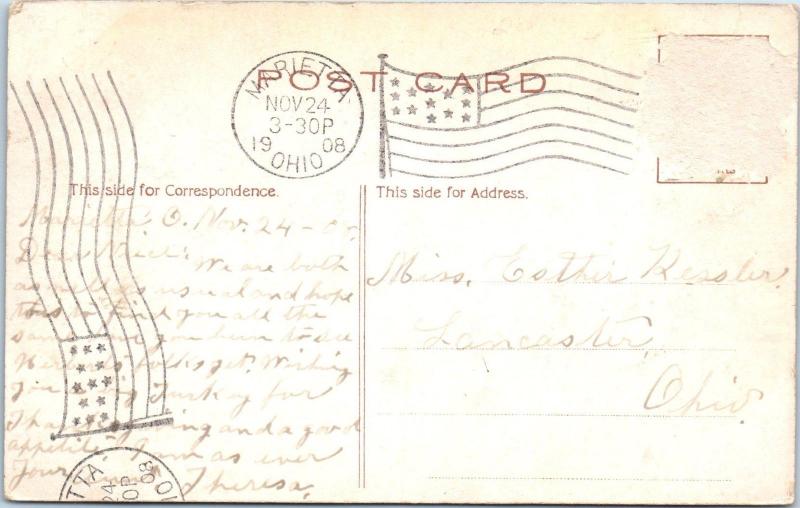 POST CARD
MARIETTA
NOV 24
3-30P
19 08
OHIO
This side for Correspondence.
This side for Address.
Marietta O. Nov. 24-08.
Dear
We are both
as well as usual and hope
this to find you all the
same. you been to see
folks yet. Wishing
you a big Turkey for
Thanksgiving and a good
appetite. I am as ever
Your
Theresa.
Miss. Esther Kessler.
Lancaster,
Ohio.
TTA
24
0P
08
IO